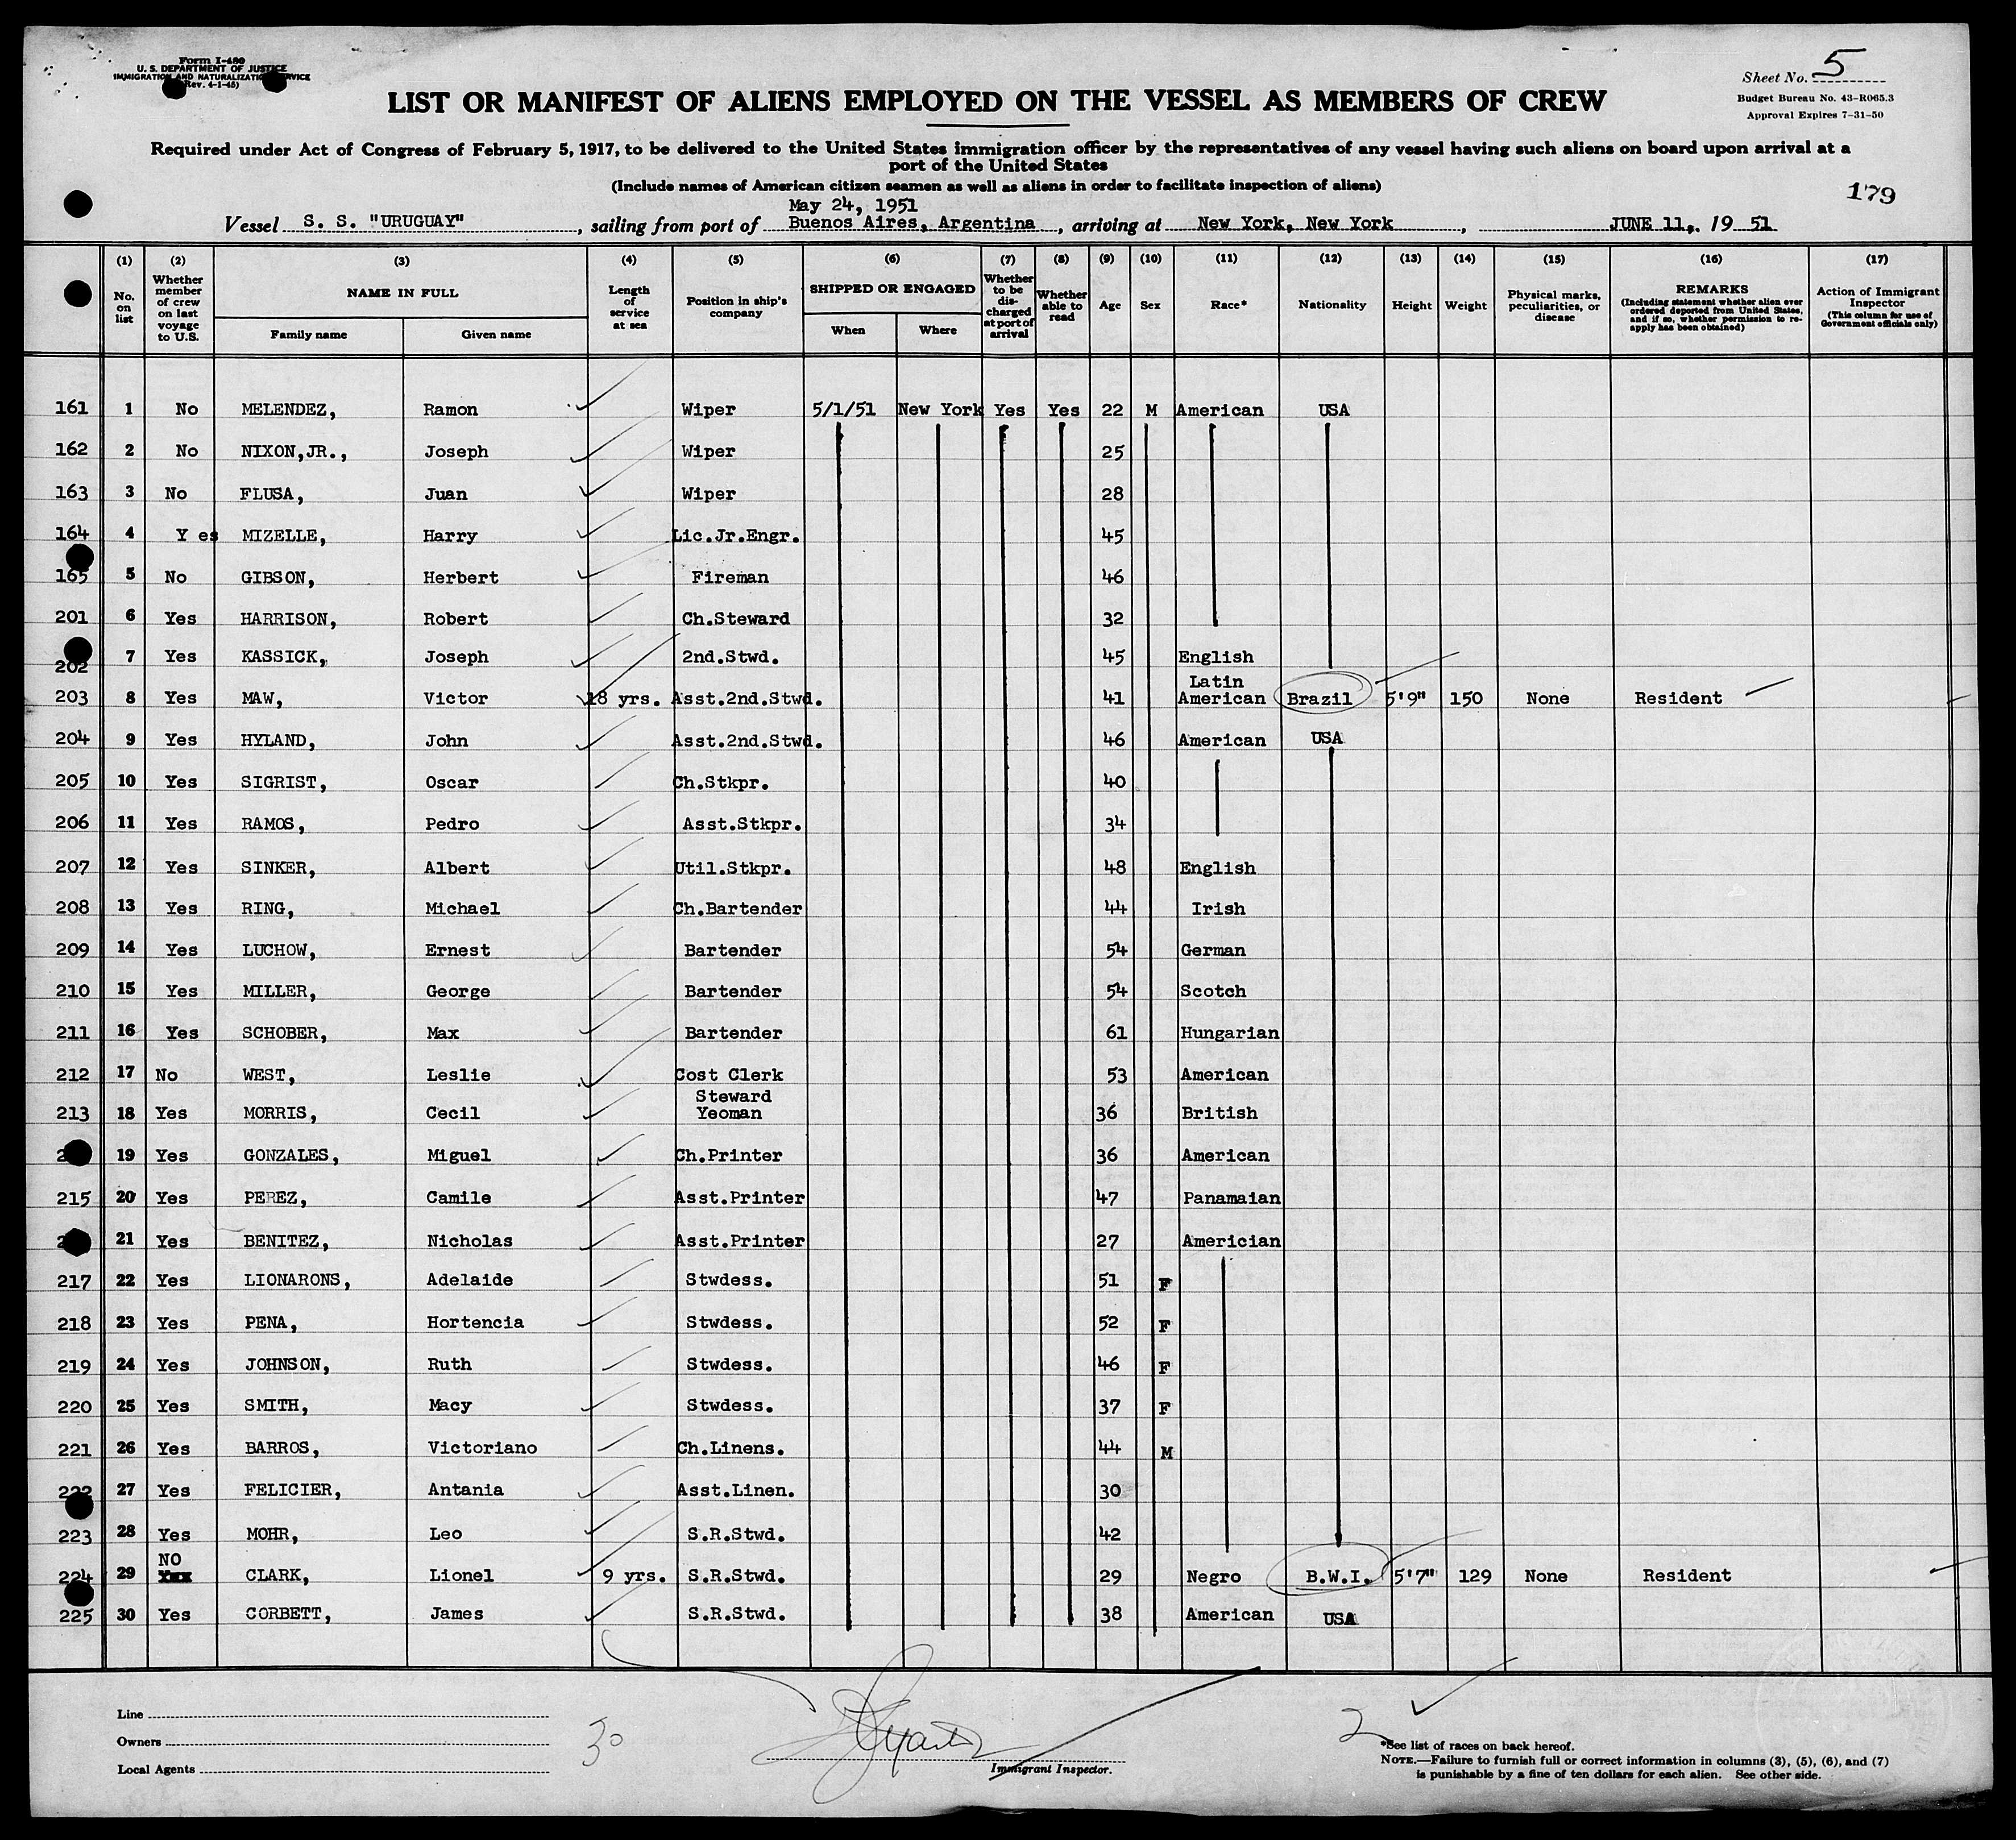 Form I-480
U. S. DEPARTMENT OF JUSTICE
IMMIGRATION AND NATURALIZATION SERVICE
(Rev. 4-1-45)
Sheet No. 5
Budget Bureau No. 43-R065.3
Approval Expires 7-31-50
LIST OR MANIFEST OF ALIENS EMPLOYED ON THE VESSEL AS MEMBERS OF CREW
Required under Act of Congress of February 5, 1917, to be delivered to the United States immigration officer by the representatives of any vessel having such aliens on board upon arrival at a
port of the United States
(Include names of American citizen seamen as well as aliens in order to facilitate inspection of aliens)
179
May 24, 1951
Vessel S. S. "URUGUAY", sailing from port of Buenos Aires, Argentina, arriving at New York, New York, JUNE 11, 19 51
(1) No. on list
(2) Whether member of crew on last voyage to U.S.
(3) NAME IN FULL Family name Given name
(4) Length of service at sea
(5) Position in ship's company
(6) SHIPPED OR ENGAGED When Where
(7) Whether to be discharged at port of arrival
(8) Whether able to read
(9) Age
(10) Sex
(11) Race*
(12) Nationality
(13) Height
(14) Weight
(15) Physical marks, peculiarities, or disease
(16) REMARKS (Including statement whether alien ever ordered deported from United States, and if so, whether permission to reapply has been obtained)
(17) Action of Immigrant Inspector (This column for use of Government officials only)
161 1 No MELENDEZ, Ramon Wiper 5/1/51 New York Yes Yes 22 M American USA
162 2 No NIXON,JR., Joseph Wiper 25
163 3 No FLUSA, Juan Wiper 28
164 4 Y es MIZELLE, Harry Lic.Jr.Engr. 45
165 5 No GIBSON, Herbert Fireman 46
201 6 Yes HARRISON, Robert Ch.Steward 32
202 7 Yes KASSICK, Joseph 2nd.Stwd. 45 English
203 8 Yes MAW, Victor 18 yrs. Asst.2nd.Stwd. 41 Latin American Brazil 5'9" 150 None Resident
204 9 Yes HYLAND, John Asst.2nd.Stwd. 46 American USA
205 10 Yes SIGRIST, Oscar Ch.Stkpr. 40
206 11 Yes RAMOS, Pedro Asst.Stkpr. 34
207 12 Yes SINKER, Albert Util.Stkpr. 48 English
208 13 Yes RING, Michael Ch.Bartender 44 Irish
209 14 Yes LUCHOW, Ernest Bartender 54 German
210 15 Yes MILLER, George Bartender 54 Scotch
211 16 Yes SCHOBER, Max Bartender 61 Hungarian
212 17 No WEST, Leslie Cost Clerk 53 American
213 18 Yes MORRIS, Cecil Steward Yeoman 36 British
19 Yes GONZALES, Miguel Ch.Printer 36 American
215 20 Yes PEREZ, Camile Asst.Printer 47 Panamaian
21 Yes BENITEZ, Nicholas Asst.Printer 27 Americian
217 22 Yes LIONARONS, Adelaide Stwdess. 51 F
218 23 Yes PENA, Hortencia Stwdess. 52 F
219 24 Yes JOHNSON, Ruth Stwdess. 46 F
220 25 Yes SMITH, Macy Stwdess. 37 F
221 26 Yes BARROS, Victoriano Ch.Linens. 44 M
222 27 Yes FELICIER, Antania Asst.Linen. 30
223 28 Yes MOHR, Leo S.R.Stwd. 42
224 29 NO CLARK, Lionel 9 yrs. S.R.Stwd. 29 Negro B.W.I. 5'7" 129 None Resident
225 30 Yes CORBETT, James S.R.Stwd. 38 American USA
Line
Owners
Local Agents
30
Immigrant Inspector.
2
*See list of races on back hereof.
NOTE.—Failure to furnish full or correct information in columns (3), (5), (6), and (7)
is punishable by a fine of ten dollars for each alien. See other side.